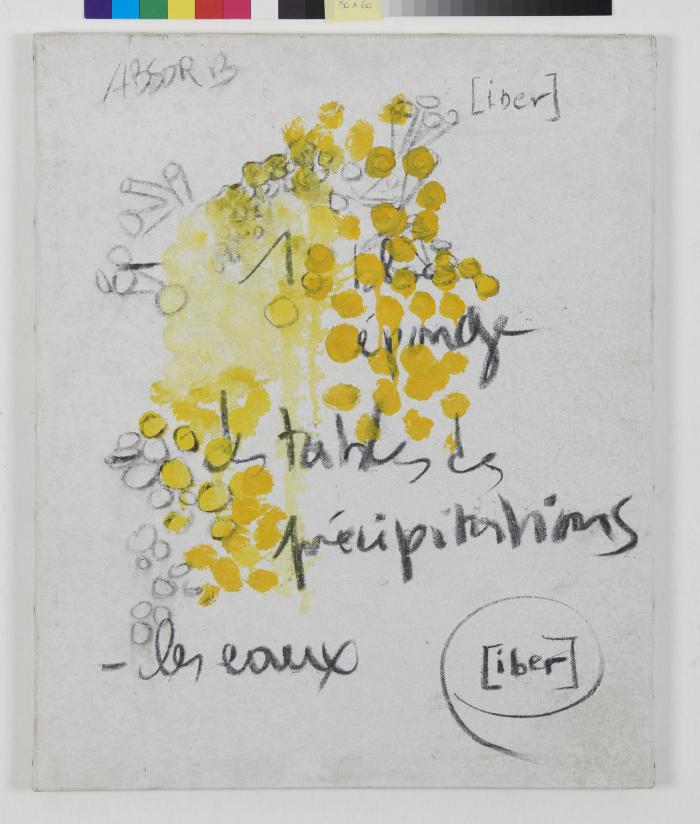 50 x 60
ABSOR B
[iber]
1
éponge
des tables des
précipitations
- les eaux
[iber]